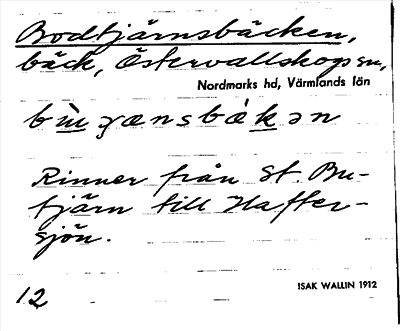 Bodtjärnsbäcken,
bäck, Östervallskogs sn,
Nordmarks hd, Värmlands län
Rinner från St. Bu-
tjärn till Haffer-
sjön.
12
ISAK WALLIN 1912